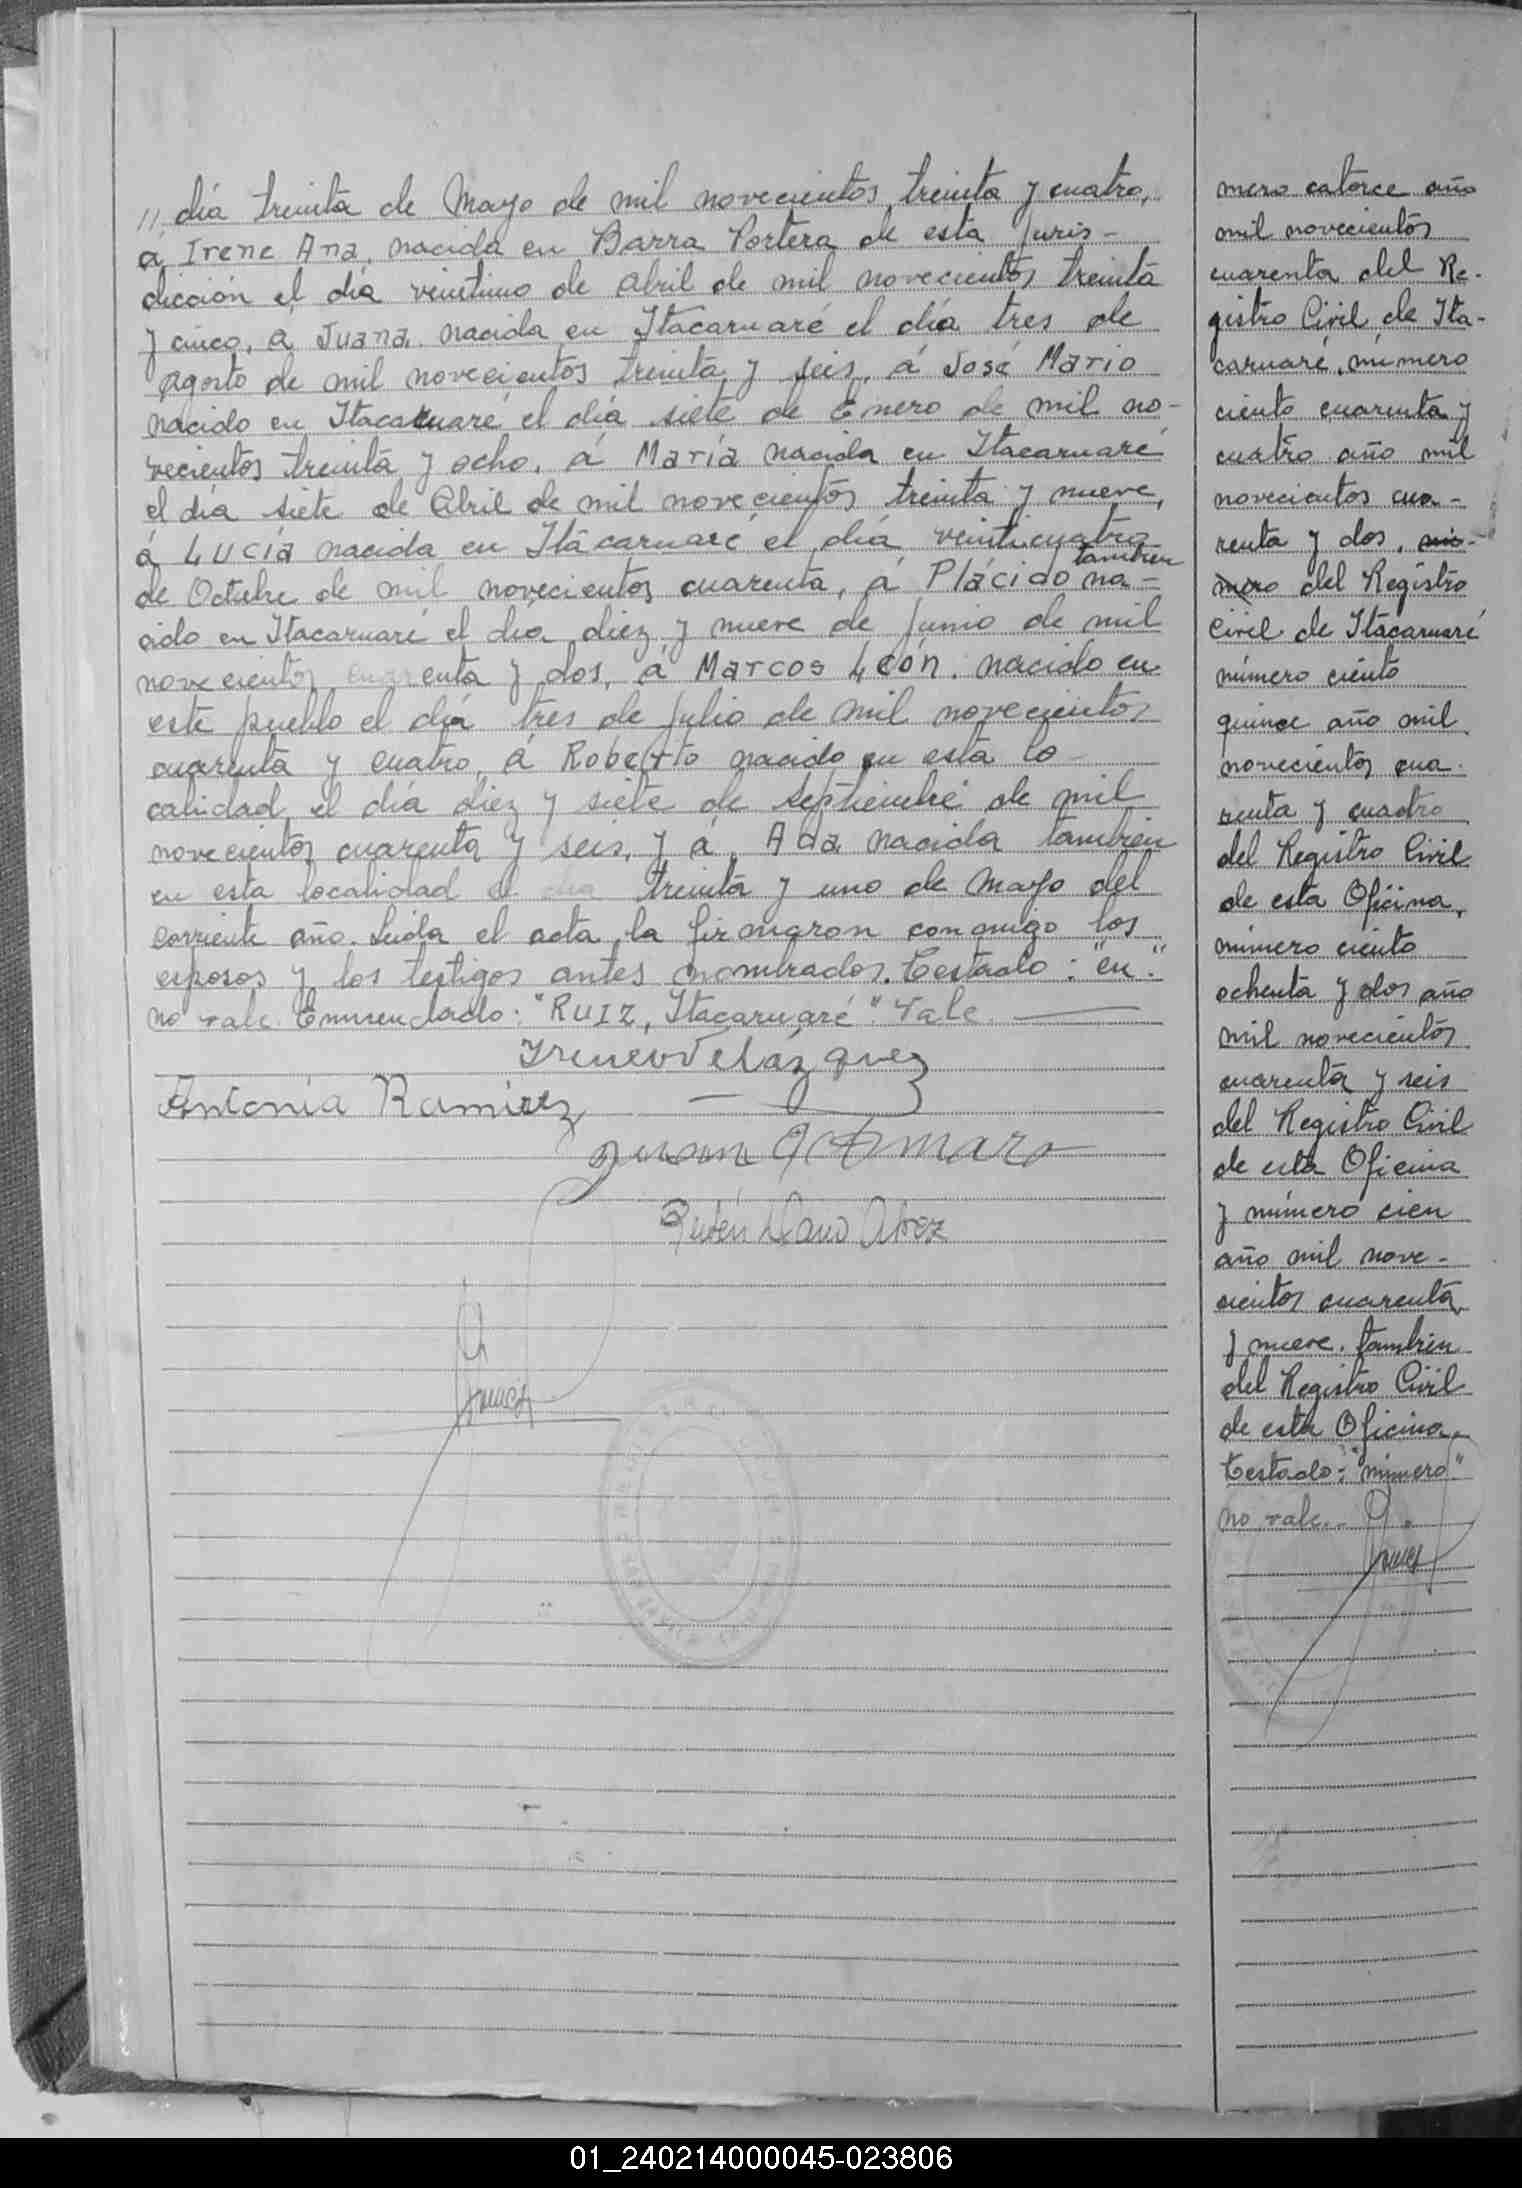 // día treinta de Mayo de mil novecientos treinta y cuatro,
á Irene Ana, nacida en Barra Portera de esta juris-
dicción el día veintiuno de Abril de mil novecientos treinta
y cinco, a Juana, nacida en Itacaruaré el día tres de
Agosto de mil novecientos treinta y seis, á José Mario
nacido en Itacaruaré el día siete de Enero de mil no-
vecientos treinta y ocho, á María nacida en Itacaruaré
el día siete de Abril de mil novecientos treinta y nueve,
á Lucía nacida en Itacaruaré el día veinticuatro
de Octubre de mil novecientos cuarenta, á Plácido también na-
cido en Itacaruaré el día diez y nueve de junio de mil
novecientos cuarenta y dos, á Marcos León, nacido en
este pueblo el día tres de julio de mil novecientos
cuarenta y cuatro, á Roberto nacido en esta lo-
calidad el día diez y siete de Septiembre de mil
novecientos cuarenta y seis, y á Ada nacida también
en esta localidad el día treinta y uno de Mayo del
corriente año. Leída el acta, la firmaron conmigo los
esposos y los testigos antes nombrados. Testado: "en".
no vale. Enmendado: "RUIZ, Itacaruaré". Vale.
Ireneo Velázquez
Antonia Ramirez
Juan
Rubén Dario
mero catorce año
mil novecientos
cuarenta del Re-
gistro Civil de Ita-
caruaré, número
ciento cuarenta y
cuatro año mil
novecientos cua-
renta y dos, nú-
mero del Registro
Civil de Itacaruaré
número ciento
quince año mil
novecientos cua-
renta y cuatro
del Registro Civil
de esta Oficina,
número ciento
ochenta y dos año
mil novecientos
cuarenta y seis
del Registro Civil
de esta Oficina
y número cien
año mil nove-
cientos cuarenta
y nueve, también
del Registro Civil
de esta Oficina.
Testado: "número"
no vale.
01_240214000045-023806